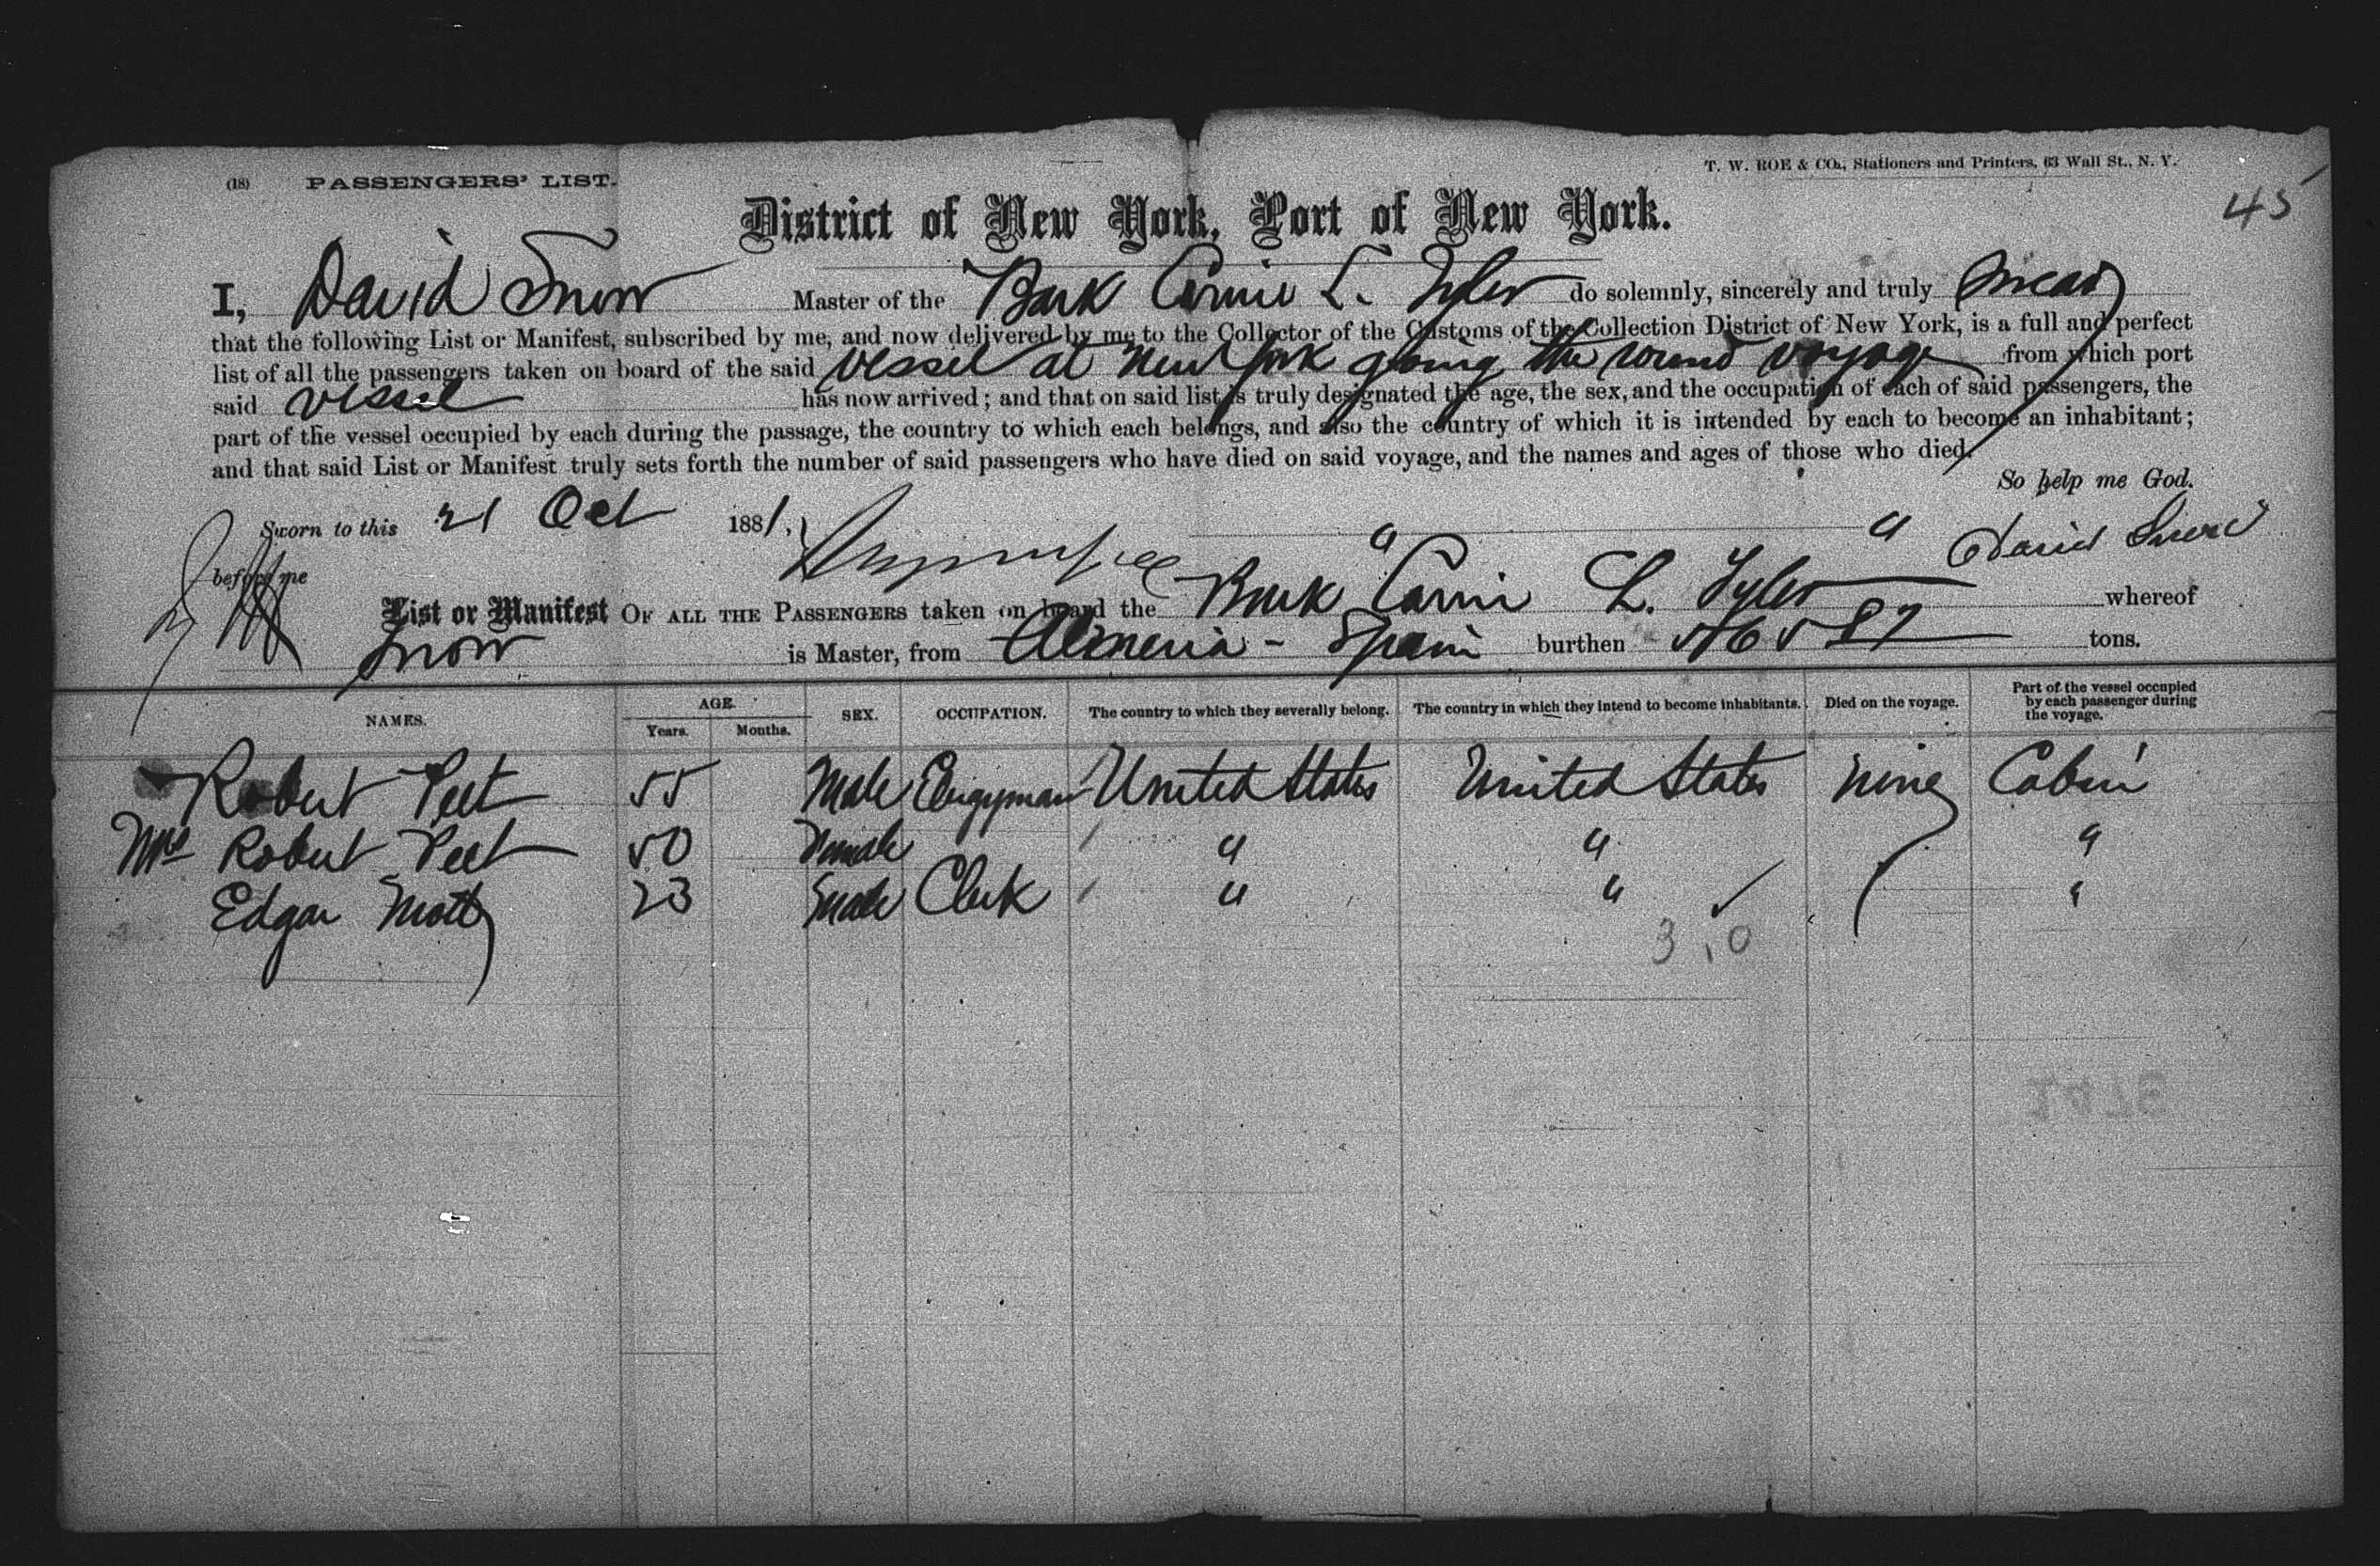 (18) PASSENGERS' LIST.
T. W. ROE & CO., Stationers and Printers, 63 Wall St., N. Y.
45
District of New York, Port of New York.
I, David Snow Master of the Bark Carrie L. Tyler do solemnly, sincerely and truly swear
that the following List or Manifest, subscribed by me, and now delivered by me to the Collector of the Customs of the Collection District of New York, is a full and perfect
list of all the passengers taken on board of the said vessel at New York going the round voyage from which port
said vessel has now arrived; and that on said list is truly designated the age, the sex, and the occupation of each of said passengers, the
part of the vessel occupied by each during the passage, the country to which each belongs, and also the country of which it is intended by each to become an inhabitant;
and that said List or Manifest truly sets forth the number of said passengers who have died on said voyage, and the names and ages of those who died.
So help me God.
Sworn to this 21 Oct 1881,
David Snow
before me
List or Manifest OF ALL THE PASSENGERS taken on board the Bark "Carrie L. Tyler" whereof
Snow is Master, from Almeria - Spain burthen 565 87 tons.
NAMES. AGE. Years. Months. SEX. OCCUPATION. The country to which they severally belong. The country in which they intend to become inhabitants. Died on the voyage. Part of the vessel occupied by each passenger during the voyage.
Robert Peet 55 Male Clergyman United States United States none Cabin
Mrs Robert Peet 50 Female " " "
Edgar Mott 23 male Clerk " " "
3 , 0